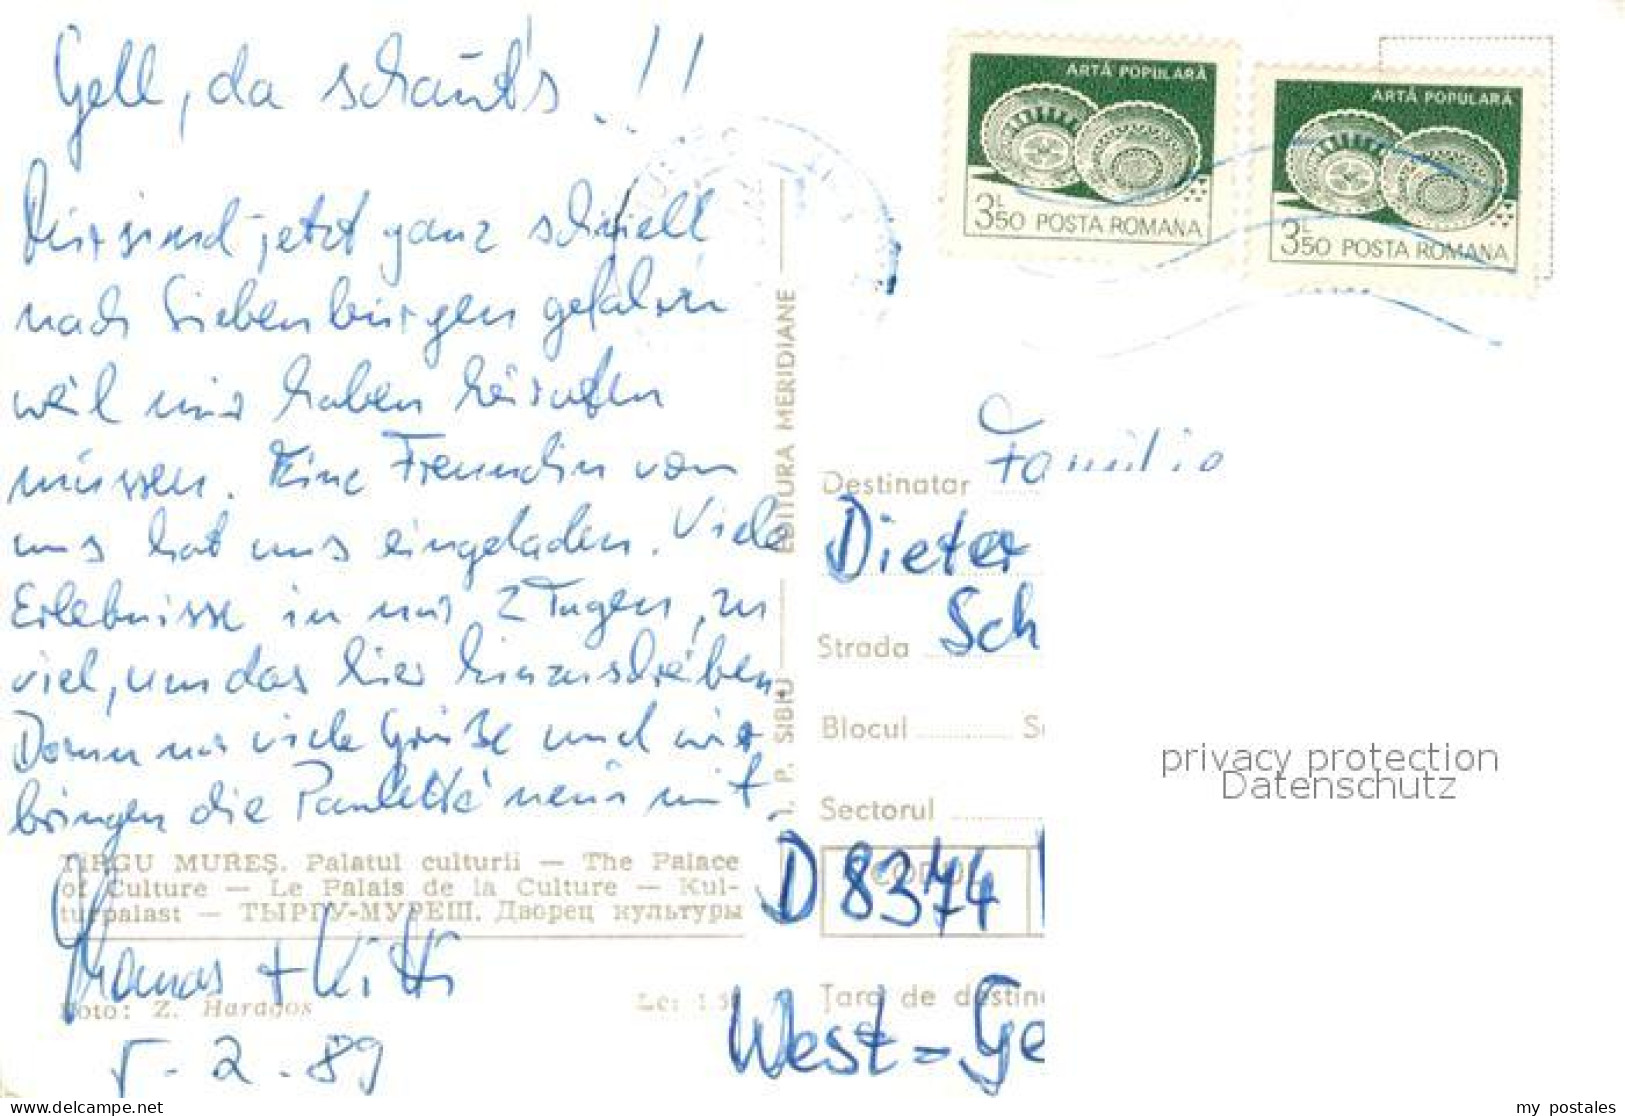 Gell, da schaut's !!
Wir sind jetzt ganz schnell
nach Siebenbürgen gefahren
weil wir haben
müssen. Eine Freundin von
uns hat uns eingeladen. Viele
Erlebnisse in nur 2 Tagen, zu
viel, um das hier hinzuschreiben.
Darum nur viele Grüße und wir
bringen die mit
TÎRGU MUREŞ. Palatul culturii — The Palace
of Culture — Le Palais de la Culture — Kul-
turpalast — ТЫРГУ-МУРЕШ. Дворец культуры
Thomas + Kitti
Foto: Z. Haragos
5.2.89
I. P. SIBIU EDITURA MERIDIANE
ARTĂ POPULARĂ
3L50 POSTA ROMANA
ARTĂ POPULARĂ
3L50 POSTA ROMANA
Destinatar Familie
Dieter
Strada Sch
Blocul
Sectorul
D 8374
Ţara de destin
West-Ge
privacy protection
Datenschutz
www.delcampe.net
my_postales